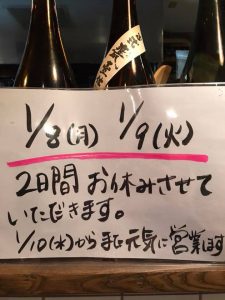 1/8(月) 1/9(火)
2日間 お休みさせて
いただきます。
1/10(水)から また元気に営業します